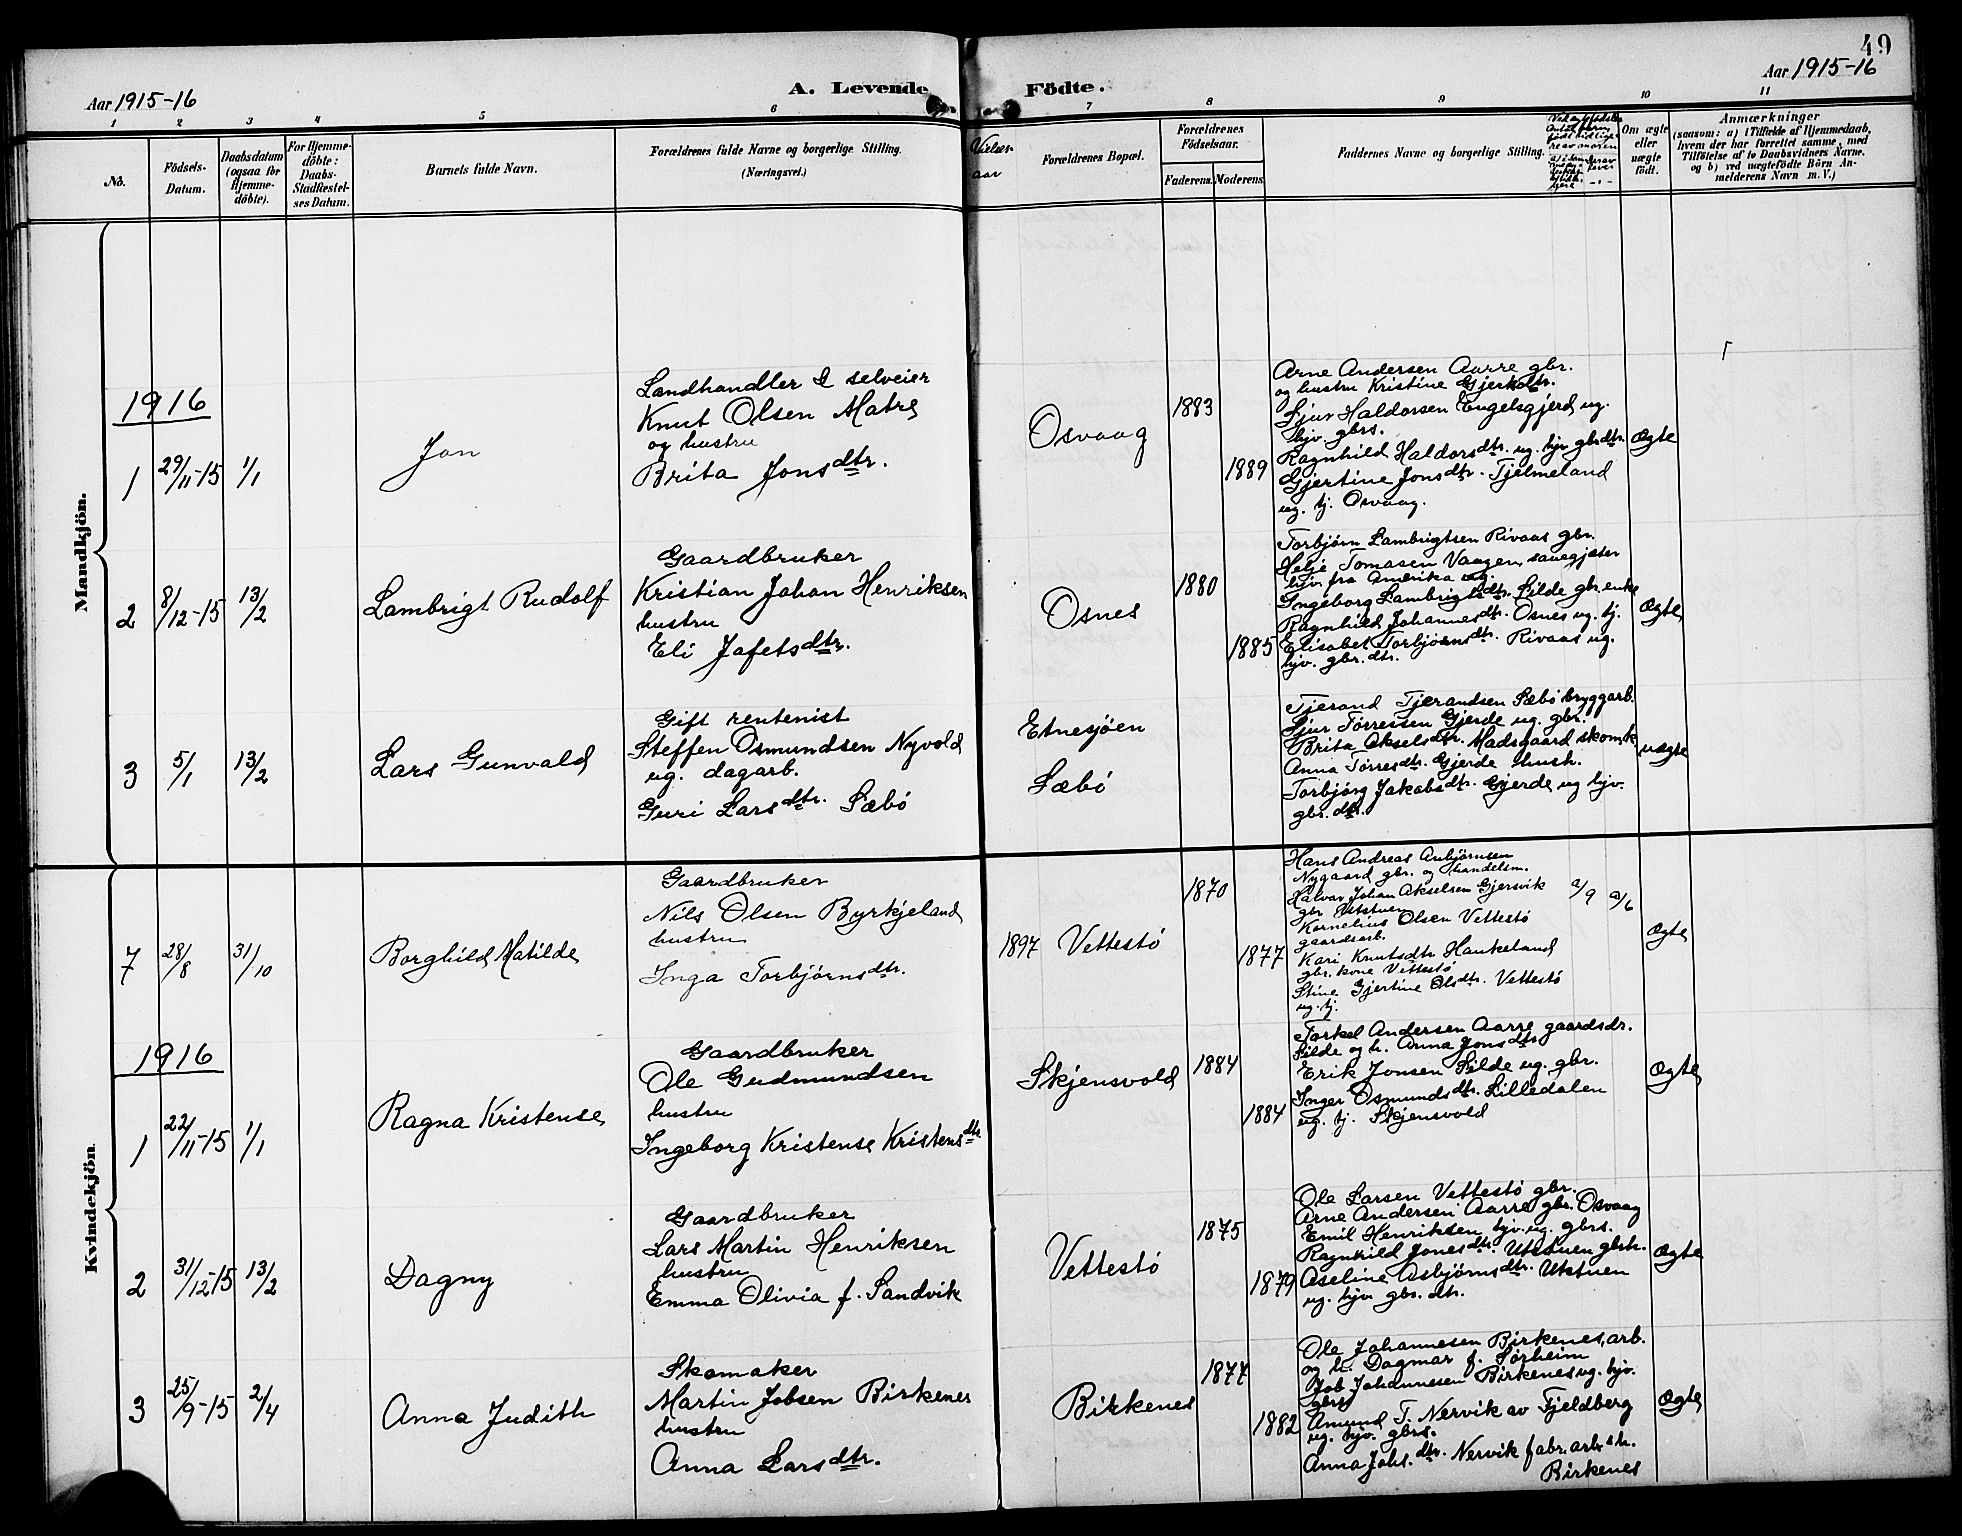 49
Aar 1915-16
A. Levende Födte.
Aar 1915-16
1 2 3 4 5 6 7 8 9 10 11
No.
Födsels-
Datum.
Daabsdatum
(ogsaa for
Hjemme-
döbte).
For Hjemme-
döbte:
Daabs-
Stadfæstel-
ses Datum.
Barnets fulde Navn.
Forældrenes fulde Navne og borgerlige Stilling.
(Næringsvei.)
Vielses
aar
Forældrenes Bopæl.
Forældrenes
Födselsaar.
Faderens. Moderens.
Faddernes Navne og borgerlige Stilling.
Om ægte
eller
uægte
født.
Anmærkninger
(saasom: a) i Tilfælde af Hjemmedaab,
hvem der har forrettet samme, med
Tilföielse af to Daabsvidners Navne.
og b) ved uægtefödte Börn An-
melderens Navn m. V.)
Mandkjön.
1916
1
29/11-15
1/1
Jon
Landhandler & selveier
Knut Olsen Matre
og hustru
Brita Jonsdtr.
Osvaag
1883
1889
Arne Andersen Aarre gbr.
og hustru Kristine Gjerksdtr.
Sjur Haldorsen Engelsgjerd ug.
hjv. gbrs.
Ragnhild Haldorsdtr. ug. hjv gbrdtr.
Gjertine Jonsdtr. Tjelmeland
ug. tj. Osvaag.
Ægte
2
8/12-15
13/2
Lambrigt Rudolf
Gaardbruker
Kristian Johan Henriksen
hustru
Eli Jafetsdtr.
Osnes
1880
1885
Torbjørn Lambrigtsen Rivaas gbr.
Helje Tomasen Vaagen, sauegjæter
hjv. fra Amerika ug.
Ingeborg Lambrigtsdtr. Silde gbr. enke
Ragnhild Johannesdtr. Osnes ug. tj.
Elisabet Torbjørnsdtr. Rivaas ug.
hjv. gbr. dtr.
Ægte
3
5/1
13/2
Lars Gunvald
Gift rentenist
Steffen Osmundsen Nyvold
ug. dagarb.
Guri Larsdtr. Sæbö
Etnesjøen
Sæbö
Tjerand Tjerandsen Sæbö bryggarb.
Sjur Tørressen Gjerde ug. gbr.
Brita Akselsdtr. Madsgaard skom.k.
Anna Tørresdtr. Gjerde hush.
Torbjörg Jakobsdtr. Gjerde ug hjv.
gbr. dtr.
uægte
Kvindekjön
7
28/8
31/10
Borghild Matilde
Gaardbruker
Nils Olsen Byrkjeland
hustru
Inga Torbjørnsdtr.
1897
Vettestö
1870
1877
Hans Andreas Anbjørnsen
Nygaard gbr. og handelsm.
Halvar Johan Akselsen Gjersvik
gbr Utstuen
Kornelius Olsen Vettestö
gaardsarb.
Kari Knutsdtr Haukeland
gbr. kone Vettestö
Stine Gjertine Olsdtr. Vettestö
ug. tj.
a/9 a/6
Ægte
1916
1
22/11-15
1/1
Ragna Kristense
Gaardbruker
Ole Gudmundsen
hustru
Ingeborg Kristense Kristensdtr
Skjensvold
1884
1884
Torkel Andersen Aarre gaardsdr.
Silde og h. Anna Jonsdtr
Erik Jonsen Silde ug. gbr.
Inger Osmundsdtr. Lilledalen
ug. tj. Skjensvold
Ægte
2
31/12-15
13/2
Dagny
Gaardbruker
Lars Martin Henriksen
hustru
Emma Olivia f. Sandvik
Vettestö
1875
1879
Ole Larsen Vettestö gbr.
Arne Andersen Aarre gbr. Osvaag
Emil Henriksen hjv. ug. gbrs.
Ragnhild Jonesdtr. Utstuen gbrh.
Aseline Asbjørnsdtr. Utstuen
ug. hjv gbr. dtr.
Ægte
3
25/9-15
2/4
Anna Judith
Skomaker
Martin Jobsen Birkenes
hustru
Anna Larsdtr.
Birkenes
1877
1882
Ole Johannesen Birkenes, arb.
og h. Dagmar f. Sørheim
Job Johannesen Birkenes ug. hjv.
gbrs
Amund T. Nervik av Fjeldberg
ug. hjv. gbrs.
Anna Johs.dtr. Nervik fabr. arb.s h.
Birkenes
Ægte